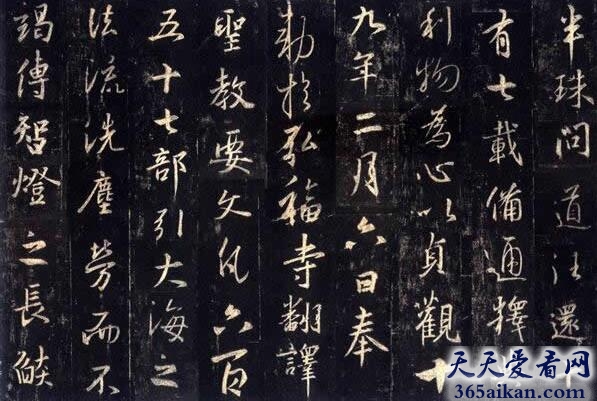 半珠問道往還十
有七載備通釋
利物為心以貞觀十
九年二月六日奉
勅於弘福寺翻譯
聖教要文凡六百
五十七部引大海之
法流洗塵勞而不
竭傳智燈之長燄
天天爱看网
365aikan.com